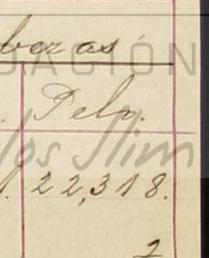 bezas
DACIÓN
. Pelx.
los Slim
. 22,318.
2